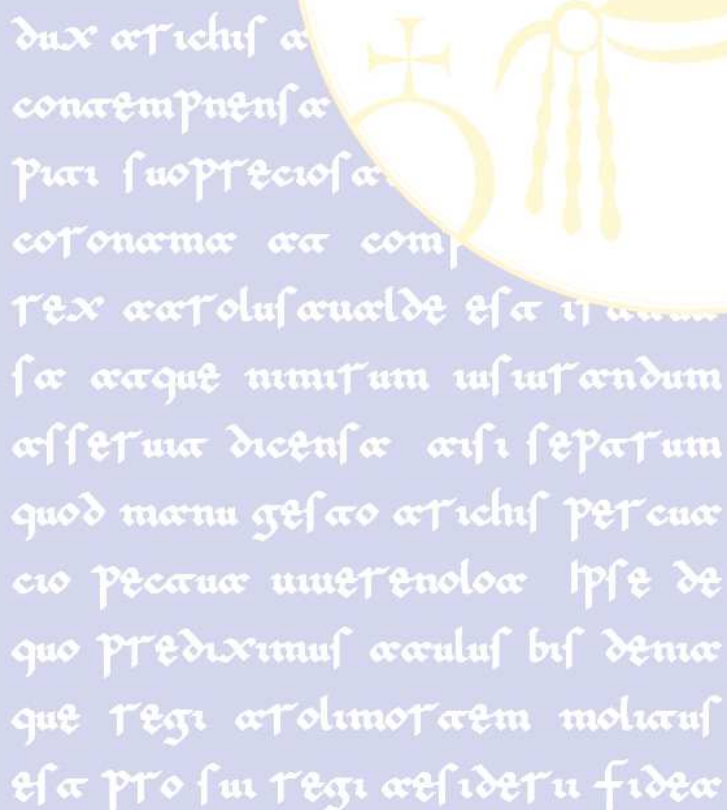 dux arichis a
contempnensa
piti suopreciosa
coronama at comp
rex aarolusaualde est ir
sa atque nimirum iusiurandum
asseruit dicensa aisi septrum
quod manu gesto arichis percua
cio pectua uiuerenoloa Ipse de
quo prediximus aaulus bis denia
que regi arolimortem molitus
est pro sui regi aesiderii fidea